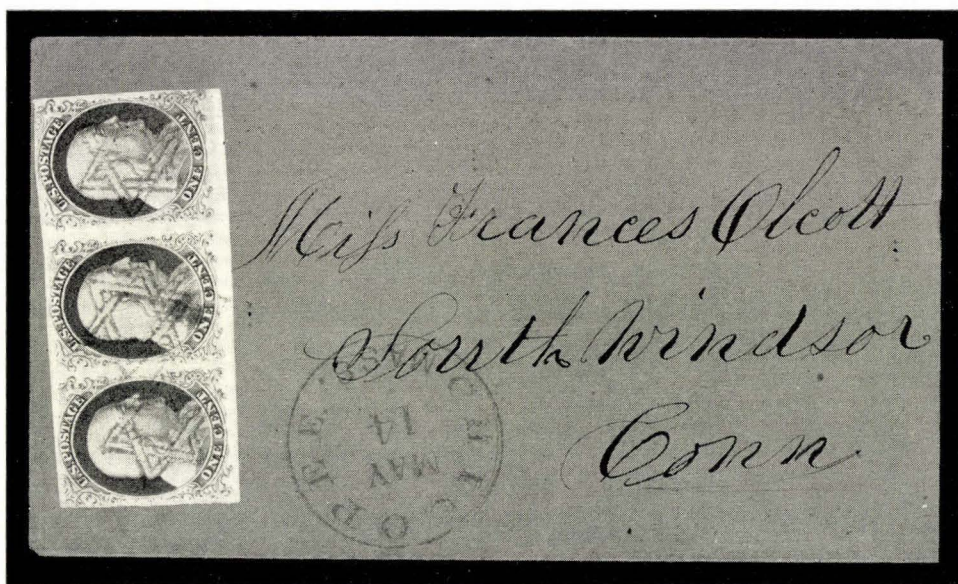 U.S. POSTAGE
ONE CENT
U.S. POSTAGE
ONE CENT
U.S. POSTAGE
ONE CENT
Miſs Frances Olcott
South Windsor
Conn
CHICOPEE MAS.
MAY
14